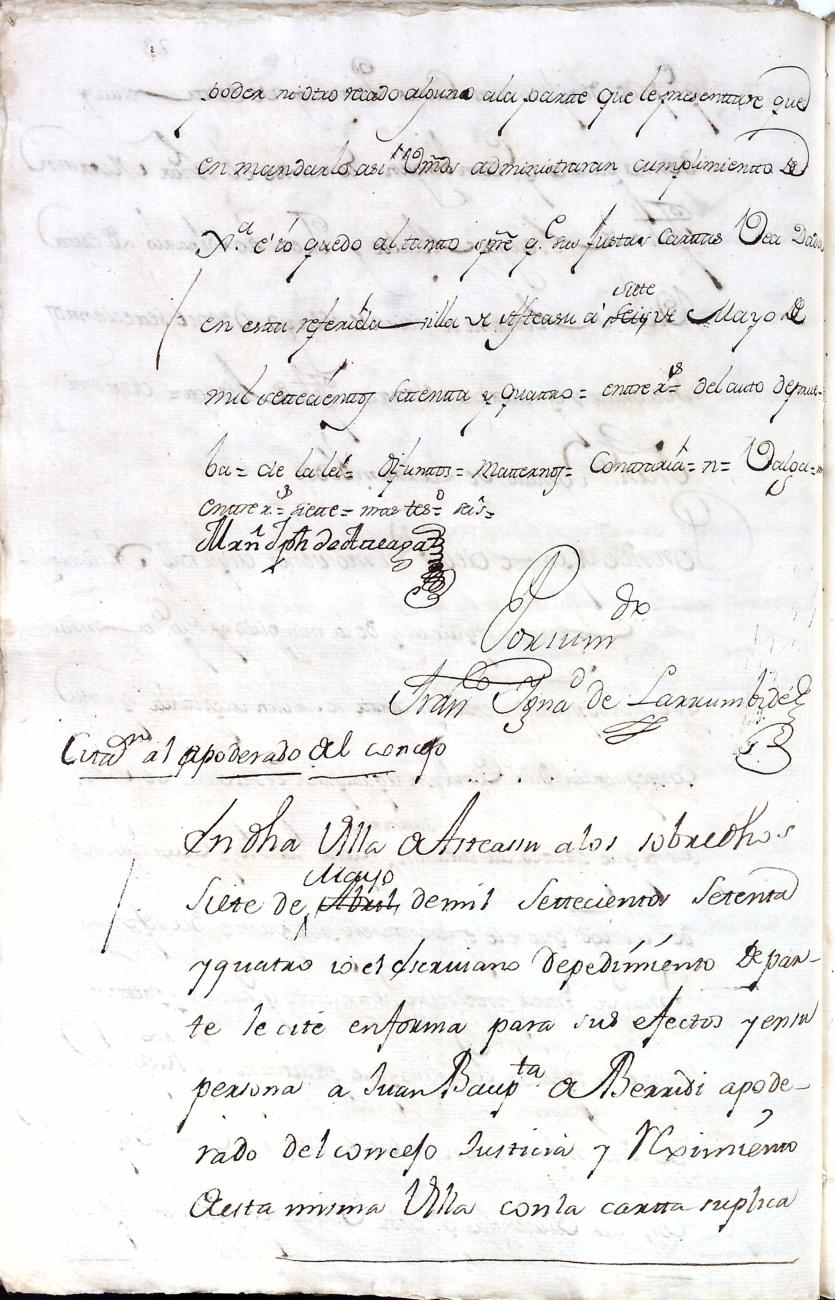 poder ni otro recado alguno a la parte que le presentare que
en mandarlo asi Vmds administraran cumplimiento de
Xª è Yo quedo al tanto spre q.e sus Justas Carttas Vea Dada
en esta referida villa de Asteasu à seis siete de Mayo de
mil settecientos settentta y quatro = entre rs = del auto de prue-
ba = de la lei = difuntos = Matternos = Contraria = n = Valga =
entre rs = siete = mas tesdo = seis =
Mrñ Jph de Atteaga
Por su mdo
Frann Ignao de Larrumbide
Citaon al apoderado del concejo
En dha Villa de Asteasu a los sobredhos
siete de Abril Mayo de mil Settecientos Setenta
y quatro io el Escriviano de pedimiento de par-
te le cité en forma para sus efectos y en su
persona a Juan Baupta de Berridi apode-
rado del concejo Justicia y Reximiento
de esta misma Villa con la cartta suplica